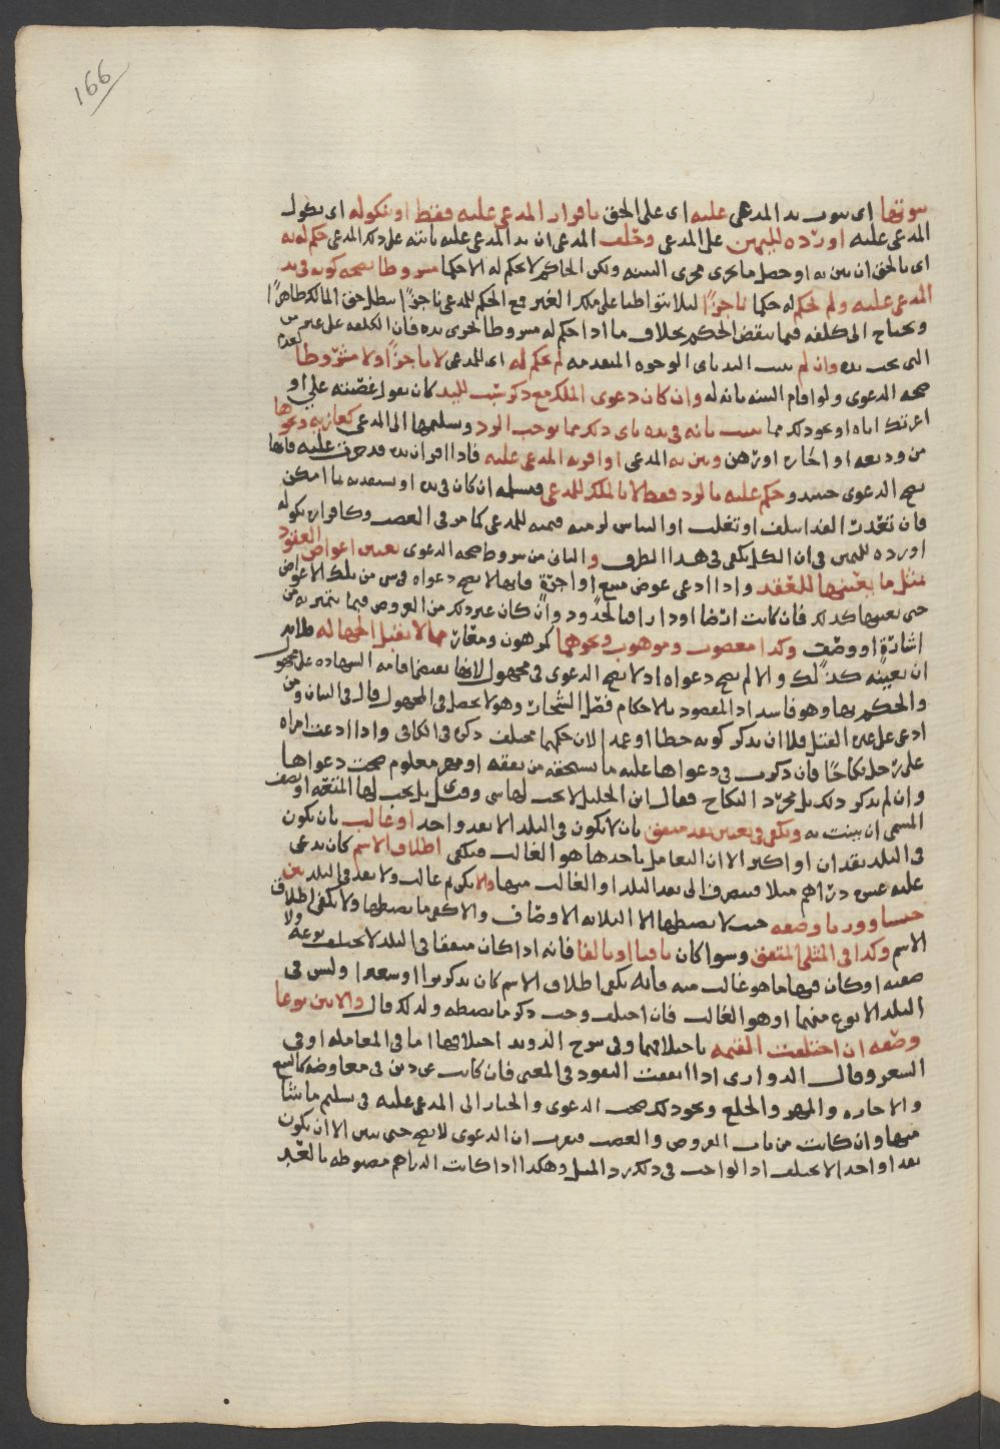 166
ثبوتها اى ثبوت يد المدعى عليه اى على الحق باقرار المدعى عليه فقط او نكوله اى نكول
المدعى عليه او رده لليمين على المدعى وحلف المدعى ان يد المدعى عليه ثابته على ذلك المدعى حكم له به
اى بالحق ان بين به او حصل ما يجرى مجرى البينه ولكن الحاكم لا يحكم له الا حكما مشروطا بصحه كونه فى يد
المدعى عليه ولم يحكم له حكما ناجزًا ليلا يتواطيا على ملك الغير فمع الحكم للمدعى ناجزًا يبطل حق المالك ظاهرًا
ويحتاج الى كلفه فيما ينقض الحكم بخلاف ما اذا حكم له مشروطا بجرى يده فان الكلفه على غيره من
التى تحت يده وان لم تثبت اليد باى الوجوه المتقدمه لم يحكم له اى للمدعى لا ناجزًا ولا مشروطا لعدم
صحه الدعوى ولو اقام البينه بانه له وان كان دعوى الملك مع ذكر سبب لليد كان يقول غصبته علي او
اعرتك اياه او نحو ذلك مما يثبت بانه فى يده باى ذلك مما يوجب الرد وتسليمها الى المدعى كعاريه ونحوها
من وديعه او اجاره او رهن وبين به المدعى او اقر به المدعى عليه فاذا اقر ان يده قد جرت عليه فانها
تصح الدعوى حينيذ و حكم عليه بالرد فقط لا بالملك للمدعى فيسلمه ان كان فى يده او يستفديه بما امكن
فان تعذر الفدا بتلف او تغلب او التباس لزمته قيمته للمدعى كما مر فى الغصب وكاقراره نكوله
او رده لليمين فى ان الكل يكفى فى هذا الطرف والثانى من شروط صحه الدعوى تعيين اعواض العقود
بمثل ما يعينها للعقد واذا ادعى عوض مبيع او اجرةٍ فانها لا تصح دعواه فى شى من تلك الاعواض
حتى يعينها كذلك فان كانت ارضا او دارا فبالحدود وان كان غير ذلك من العروض فبما يتميز به من
اشارة او وصف وكذا مغصوب وموهوب ونحوهما كمرهون ومعار مما لا يقبل الجهاله فلا بد
ان يعينه كذلك والا لم تصح دعواه اذ لا تصح الدعوى فى مجهول لانها تقتضى اقامه الشهاده على مجهول
والحكم بها وهو فاسد اذ المقصود بالاحكام فصل الشجار وهو لا يحصل فى المجهول قال فى البيان ومن
ادعى على غيره القتل فلا بد ان يذكر كونه خطا او عمدا لان حكمهما مختلف ذكره فى الكافى واذا ادعت امراه
على رجل نكاحًا فان ذكرت فى دعواها عليه ما تستحقه من نفقه او مهر معلوم صحت دعواها
وان لم تذكر ذلك بل مجرد النكاح فقال ابن الخليل لا يجب لها شى وقيل بل يجب لها المتعه او نصف
المسمى ان بينت به ويكفى فى تعيين نقد متفق بان لا يكون فى البلد الا نقد واحد او غالب بان يكون
فى البلد نقدان او اكثر الا ان التعامل باحدها هو الغالب فيكفى اطلاق الاسم كان يدعى
عليه عشره دراهم مثلا فينصرف الى نقد البلد او الغالب منها والا يكن ثم غالب ولا نقد فى البلد بين
جنسا وقدرا وصفه حيث لا يضبطها الا الثلاثه الاوصاف والا كفى ما يضبطها ولا يكفى اطلاق
الاسم وكذا فى المثلى المتفق وسوا كان باقيا او تالفا فانه اذا كان متفقا فى البلد لا يختلف نوعه ولا
صفته او كان فيها ما هو غالب منه فانه يكفى اطلاق الاسم كان يذكر برا او شعيرا وليس فى
البلد الا نوع منهما او هو الغالب فان اختلف وجب ذكر ما يضبطه ولذلك قال والا بين نوعا
وصفه ان اختلفت القيمه باختلافهما وفى شرح الذويد اختلافها اما فى المعامله او فى
السعر وقال الدوارى اذا اتفقت النقود فى المعنى فان كانت عن دين فى معاوضه كالبيع
والاجاره والمهر والخلع ونحو ذلك صحت الدعوى والخيار الى المدعى عليه فى تسليم ما شا
منها وان كانت من باب القروض والغصب فيقرب ان الدعوى لا تصح حتى تبين الا ان يكون
نقدا واحدا لا يختلف اذ الواجب فى ذلك رد المثل وهكذا اذا كانت الدراهم مضبوطه بالعد